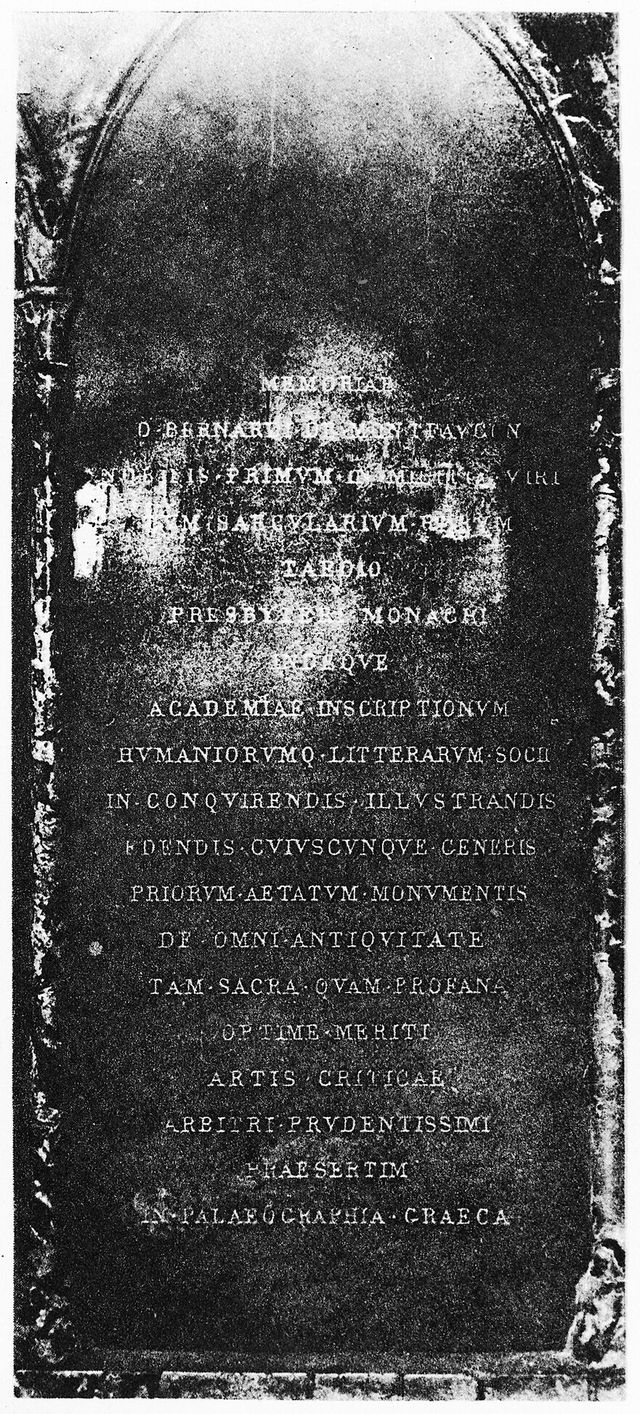 MEMORIAE
D·BERNARDI DE MONTFAVCON
NOBILIS·PRIMVM· VIRI
TAEDIO
PRESBYTERI MONACHI
INDEQVE
ACADEMIAE·INSCRIPTIONVM
HVMANIORVMQ·LITTERARVM·SOCII
IN·CONQVIRENDIS·ILLVSTRANDIS
EDENDIS·CVIVSCVNQVE·GENERIS
PRIORVM·AETATVM·MONVMENTIS
DE·OMNI·ANTIQVITATE
TAM·SACRA·QVAM·PROFANA
OPTIME·MERITI
ARTIS·CRITICAE
ARBITRI·PRVDENTISSIMI
PRAESERTIM
IN·PALAEOGRAPHIA·GRAECA